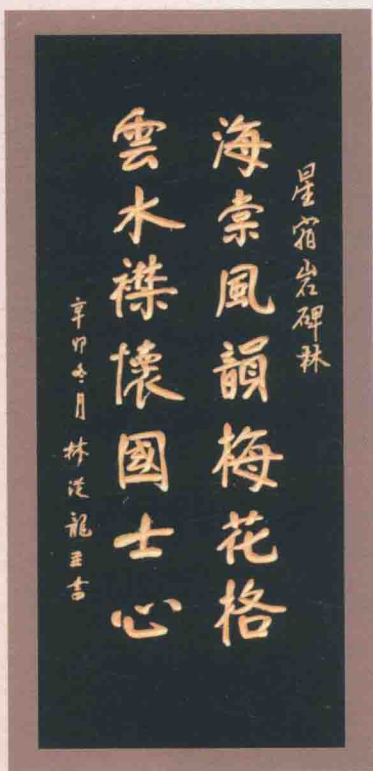 星宿岩碑林
海棠風韻梅花格
雲水襟懷國士心
辛卯冬月林從龍並書